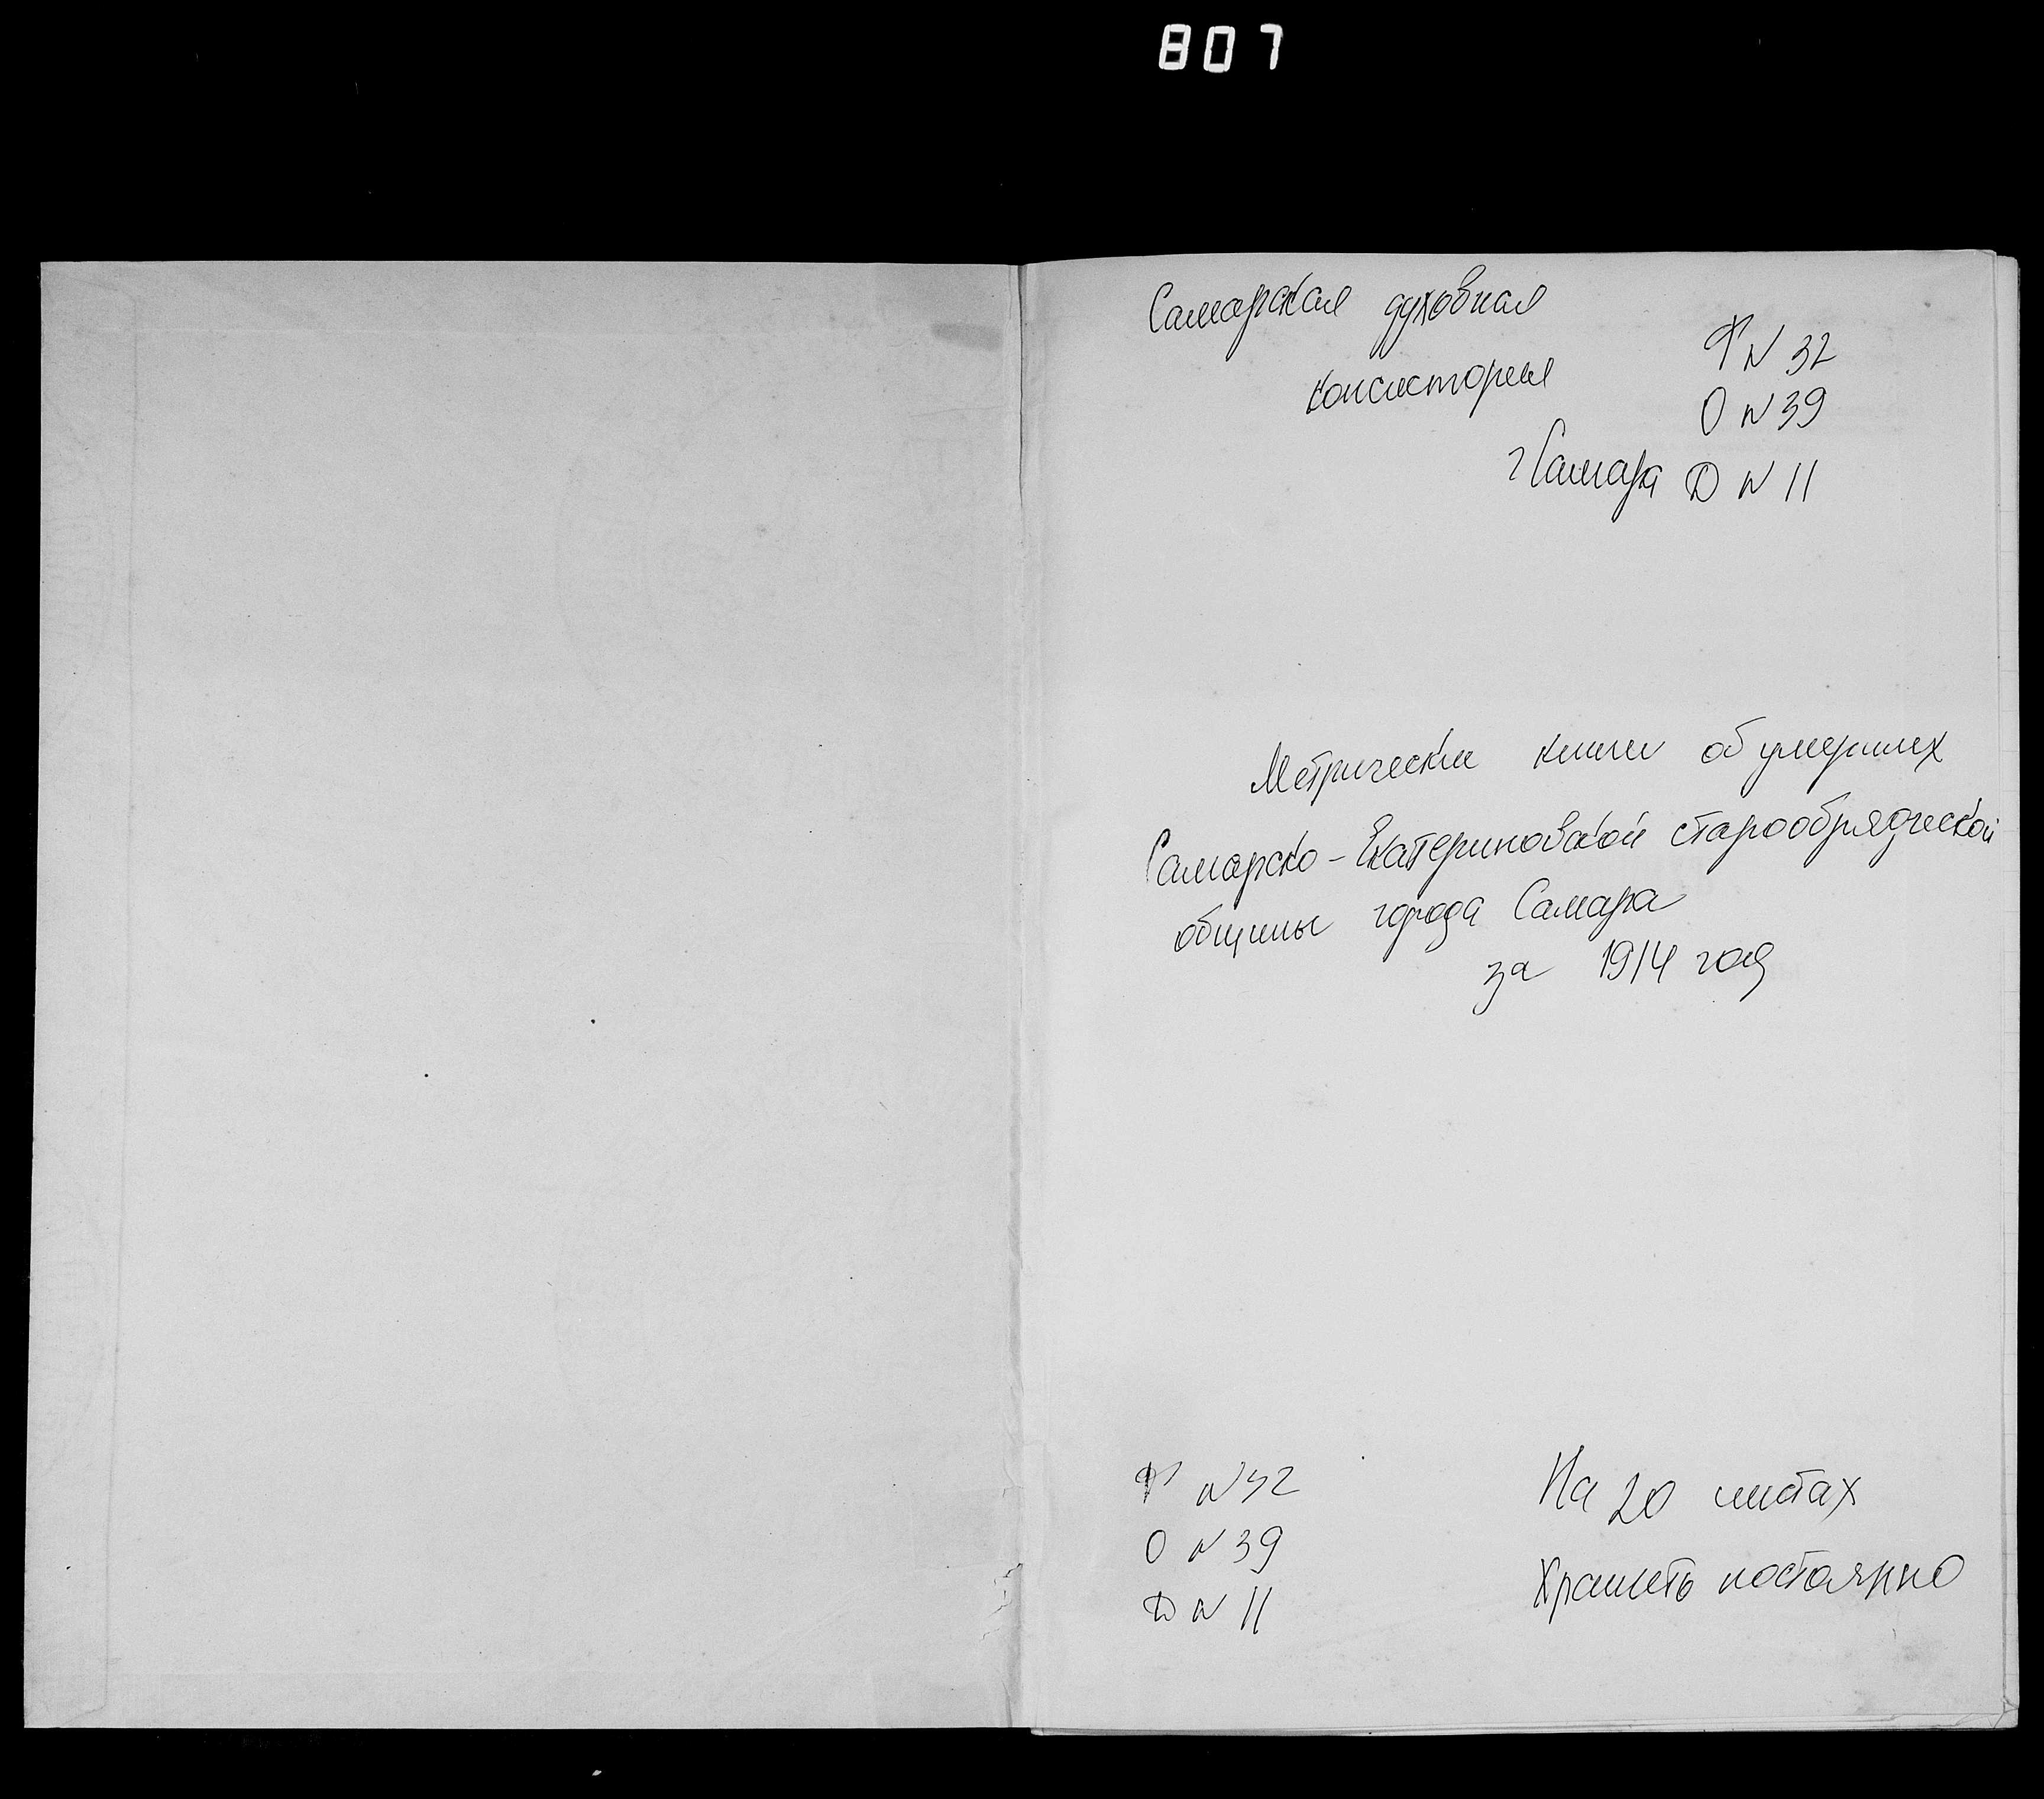 807
Самарская духовная
консистория
Ф N 32
О N 39
г Самара Д N 11
Метрически книги об умерших
Самарско-Екатериновской старообрядческой
общины города Самара
за 1914 год
Ф N 32
О N 39
Д N 11
На 20 листах
Хранить постоянно